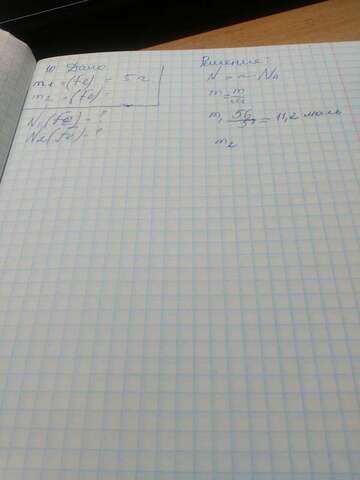 Дано:
m1 (Fe) = 5 г
m2 = (Fe) =
N1 (Fe) - ?
N2 (Fe) - ?
Решение:
N = n · NA
n = m
m1 56/5 = 11,2 моль
m2